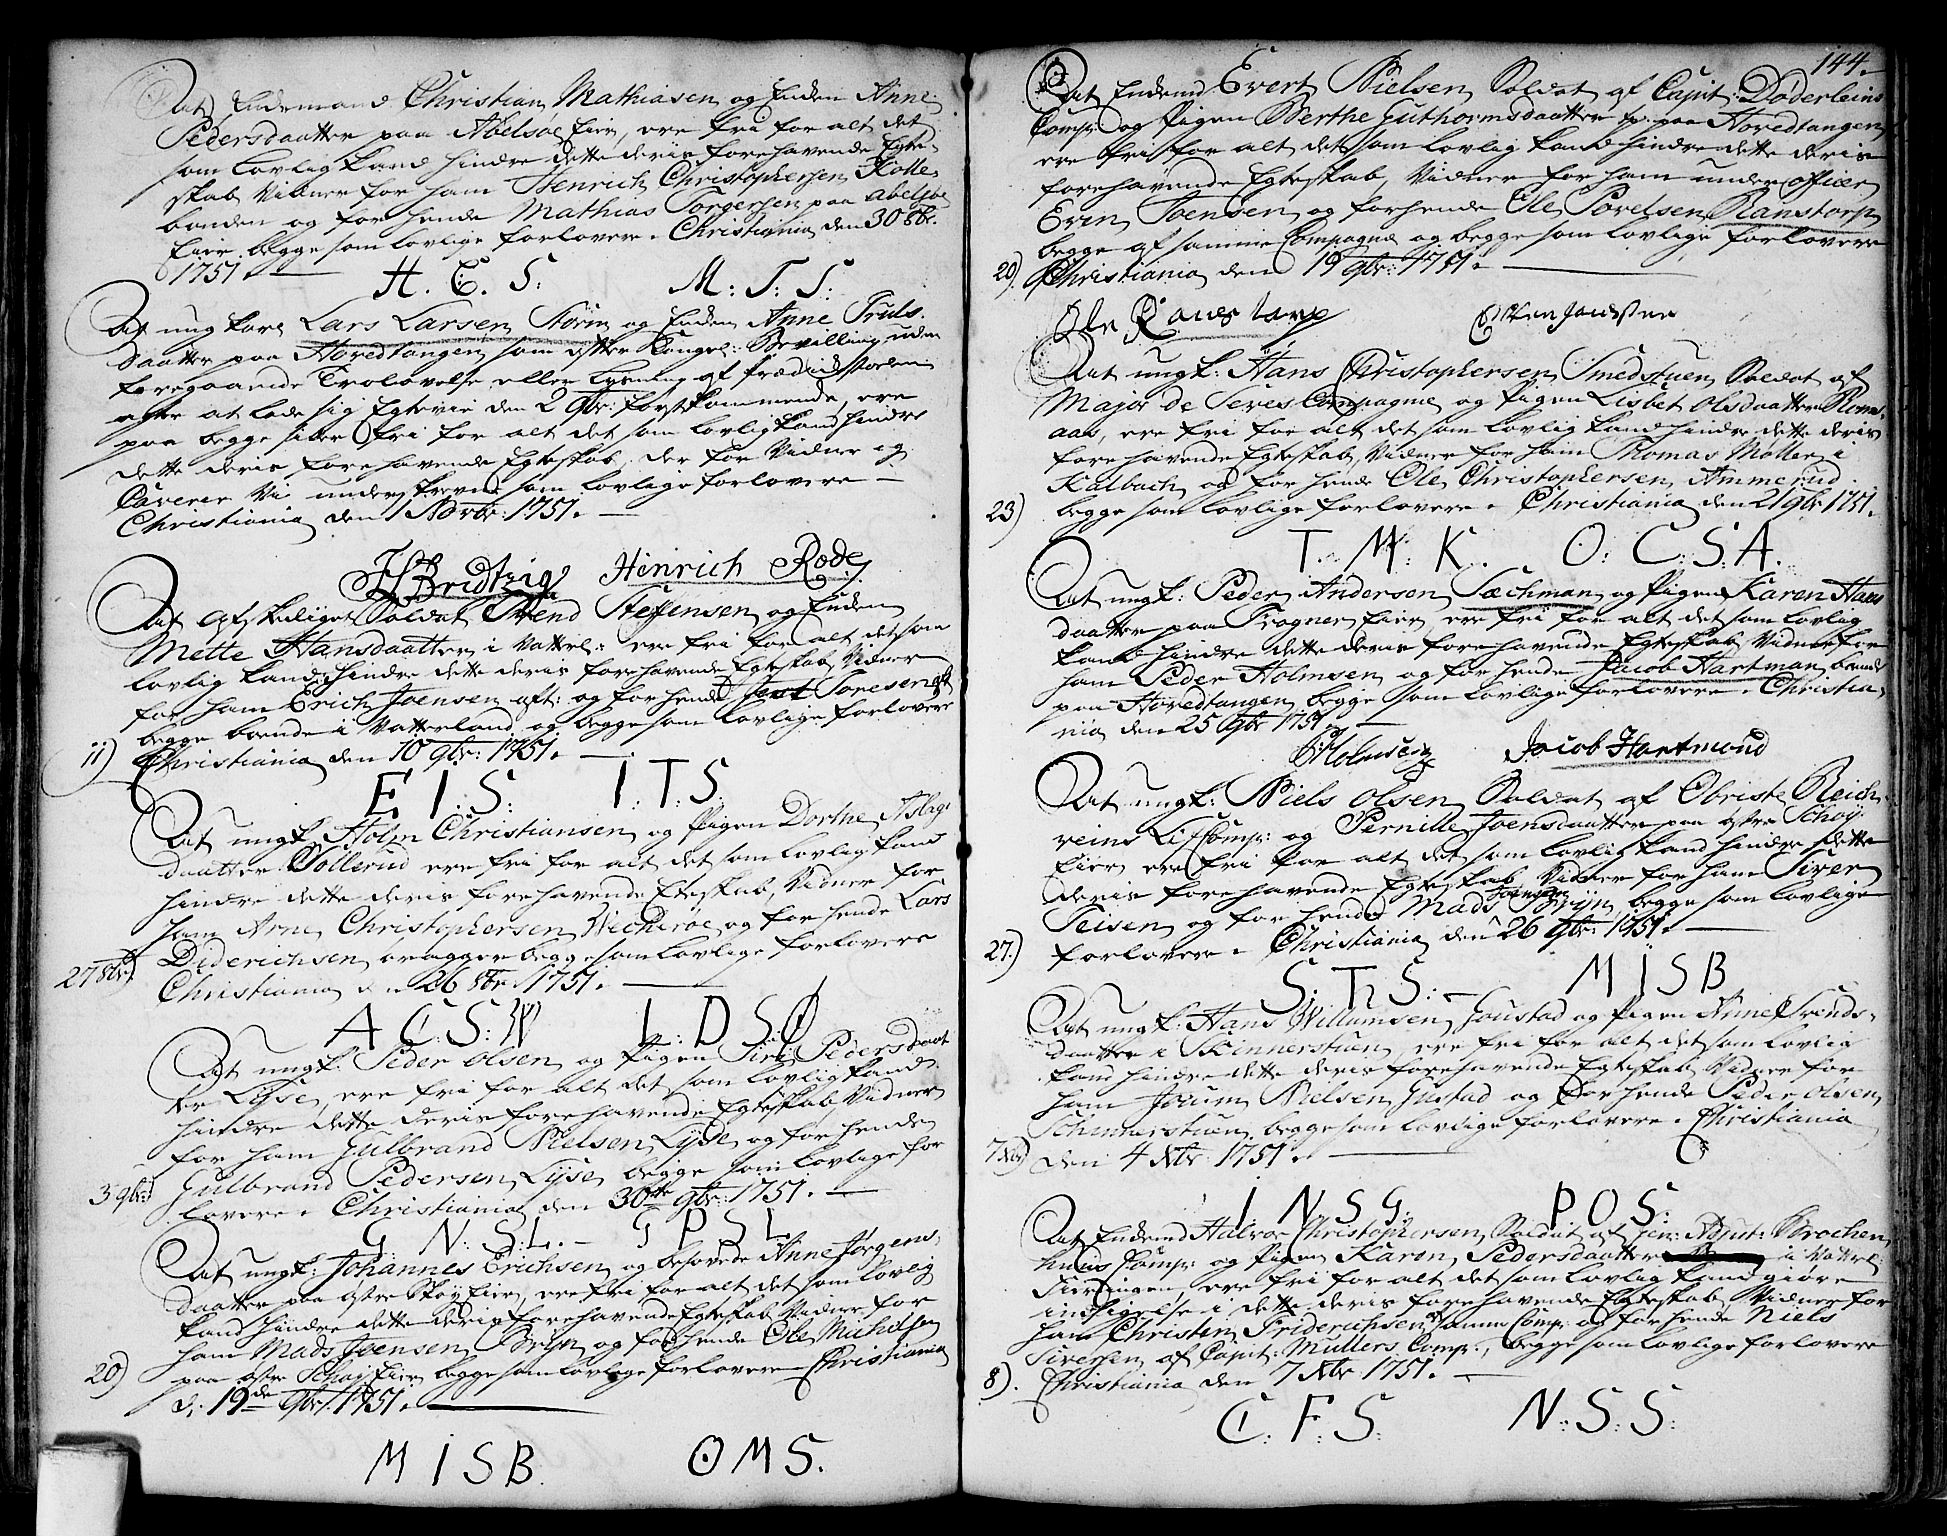 At Enckemand Christian Mathiasen og Encken Anne
Pedersdaatter paa Abelsøe Eier, ere fri for alt det
som lovlig kand hindre dette deris forehavende Egte-
skab Vidner for ham Henrich Christophersen Kolle
bonden og for hende Mathias Torgersen paa Abelsøe
Eier begge som lovlige forlovere. Christiania den 30 8br.
1751.
H. C. S: M: T: S:
At ung karl Lars Larsen Storm og Encken Anne Truls
daatter paa Hovedtangen som efter Kongel: Bevilling uden
foregaaende Trolovelse eller Lysning af Prædickestolen
agter at lade sig Egtevie den 2 9br: førstkommende, ere
paa begge sider fri for alt det som lovlig kand hindre
dette deris forehavende Egteskab. der for Vidner og
Caverer Vi underskrevne som lovlige forlovere
Christiania den 1 Novbr: 1751.
Bredtzig Hinrich Rode
At afskediget Soldat Svend Steffensen og Encken
Mette Hansdaatter i Vatterl: ere fri for alt det som
lovlig kand hindre dette deris forehavende Egteskab Vidner
for ham Erich Joensen aft: og for hende Jent Toresen
begge boende i Vatterland og begge som lovlige forlovere
11) Christiania den 10 9br: 1751.
E I: S: I: T: S:
At ungk. Holm Christiansen og Pigen Dorthe Aslag
daatter Sollerud ere fri for alt det som lovlig kand
hindre dette deris forehavende Egteskab, Vidner for
ham Arne Christophersen og for hende Lars
Diderichsen begge som lovlige forlovere
27 8br) Christiania den 26 8br 1751.
A C S: W L: D S O
At ungk. Peder Olsen og Pigen Siri Pedersdaat
ter Lyse, ere fri for alt det som lovlig kand
hindre dette deris forehavende Egteskab, Vidner
for ham Gulbrand Nielsen Lyse og for hende
Gulbrand Pedersen Lyse, begge som lovlige for
3 9br) lovere. Christiania den 30te 9br: 1751.
G N: S: L. G P S L
At ungk: Johannes Erichsen og besovede Anne Jørgens
daatter paa østre Skøy Eier, ere fri for alt det som lovlig
kand hindre dette deris forehavende Egteskab, Vidner for
ham Mads Joensen Bryn og for hende Ole Michelsen
paa østre Schøy Eier begge som lovlige forlovere Christiania
20) d: 19de 9br: 1751.
M I S B. O M S.
144.
At Enckemd Evert Nielsen Soldat af Capit: Döderleins
Comp: og Pigen Berthe Guthormsdaatter paa Hovedtangen
ere fri for alt det som lovlig kand hindre dette deris
forehavende Egteskab, Vidner for ham under officier
Even Joensen og for hende Ole Povelsen Ranstorp
begge af samme Compagnie og begge som lovlige forlovere
20) Christiania den 19 9br: 1751.
Ole Ranstorp Effven Joensen
At ungk: Hans Christophersen Smedstuen Soldat af
Major de Seves Compagnie og Pigen Lisbet Olsdaatter Roms
aas, ere fri for alt det som lovlig kand hindre dette deris
forehavende Egteskab, Vidner for ham Thomas Møller i
Kalbach, og for hende Ole Christophersen Ammerud
23) begge som lovlige forlovere. Christiania den 21 9br 1751.
T. M. K. O: C: S: A.
At ungk: Peder Andersen Sæchman og Pigen Karen Hans
daatter paa Frogner Eier, ere fri for alt det som lovlig
kand hindre dette deris forehavende Egteskab Vidner for
ham Peder Holmsen og for hende Jacob Hartman boende
paa Hovedtangen begge som lovlige forlovere. Christia
nia den 25 9br 1751.
PHolmsen Jacob Hartmand
At ungk: Niels Olsen Soldat af Obriste Reich
weins Lif Comp: og Pernille Joensdaatter paa østre Schøy
Eier, ere fri for alt det som lovlig kand hindre dette
deris forehavende Egteskab Vidner for ham Siver
Teisen og for hende Mads Joensen Bryn, begge som lovlige
27.) forlovere. Christiania den 26 9br: 1751.
S: T S: M I S B
At ungk: Hans Willumsen Goustad og Pigen Anne Svends
daatter i Skinnerstuen, ere fri for alt det som lovlig
kand hindre dette deris forehavende Egteskab, Vidner for
ham Joum Nielsen Gustad og for hende Peder Olsen
Schinnerstuen, begge som lovlige forlovere. Christiania
7 Xbr) den 4 Xbr: 1751.
I N S G. P O S:
At Enckemd Halvor Christophersen, Soldat af Gen: Adjut: Brochen
huus Comp: og Pigen Karen Pedersdaatter i Vatterl:
Fierdingen, ere fri for alt det som lovlig kand giøre
indsigelse i dette deris forehavende Egteskab, Vidner for
ham Christen Friderichsen af samme Comp: og for hende Niels
Siversen af Capit: Mullers Comp:, begge som lovlige forlovere
8). Christiania den 7 Xbr 1751.
C. F: S: N: S: S: